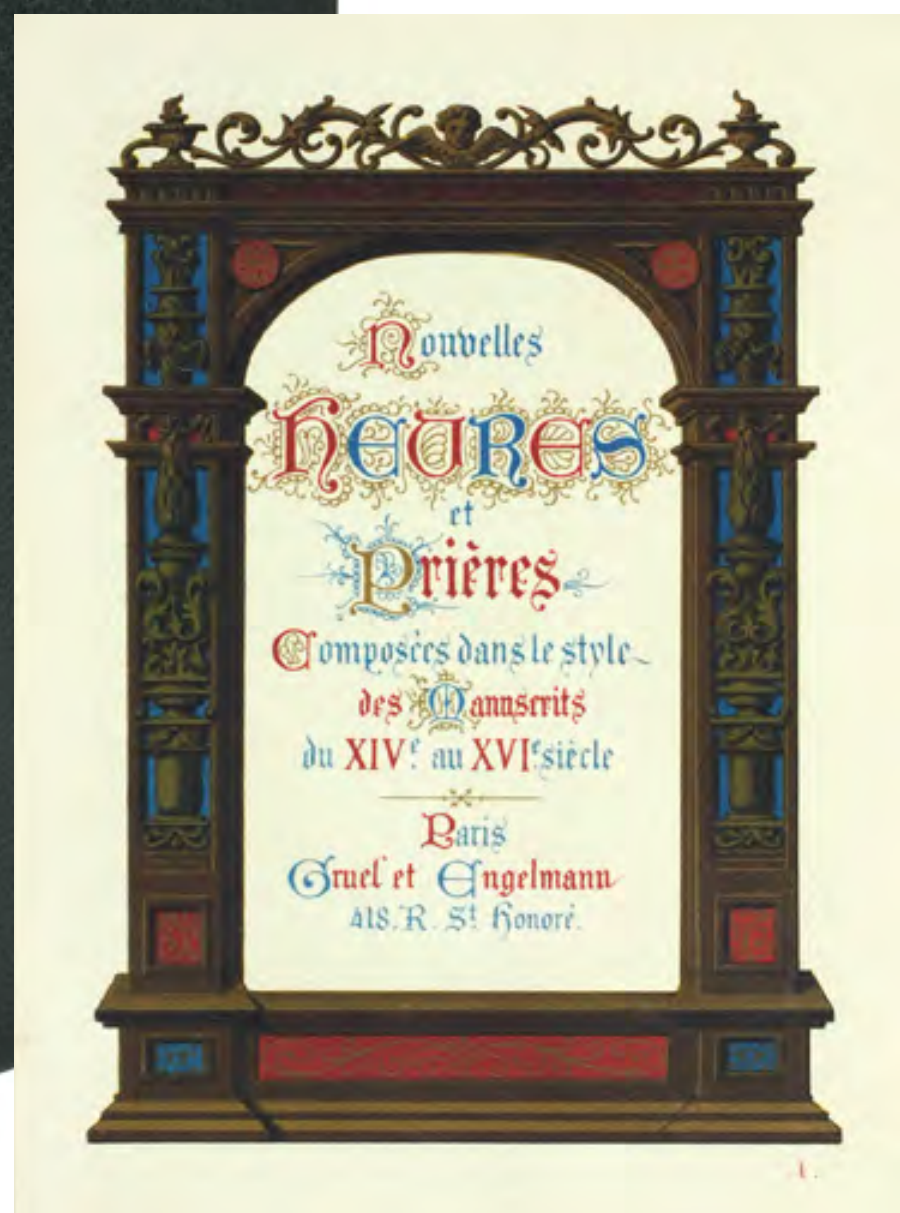 Nouvelles
HEURES
et
Prières
Composées dans le style
des Manuscrits
du XIVe au XVIe siècle
Paris
Gruel et Engelmann
418. R. St Honoré.
1.